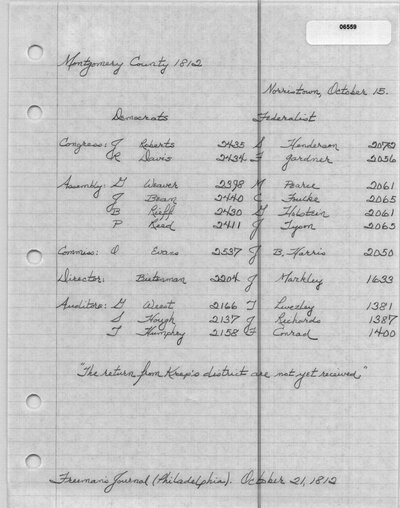 06559
Montgomery County 1812
Norristown, October 15.
Democrats Federalist
Congress: J Roberts 2435 S Henderson 2072
R Davis 2434 F Gardner 2056
Assembly: G Weaver 2398 M Pearce 2061
J Beam 2440 C Fricke 2065
B Reiff 2430 G Holstein 2061
P Reed 2411 J Tyson 2065
Commiss: O Evans 2537 J B. Harris 2050
Director: Buterman 2204 J Markley 1633
Auditors: G West 2166 T Livezley 1381
S Hough 2137 J Richards 1387
T Humphrey 2158 F Conrad 1400
"The return from Krep's district are not yet received."
Freeman's Journal (Philadelphia). October 21, 1812